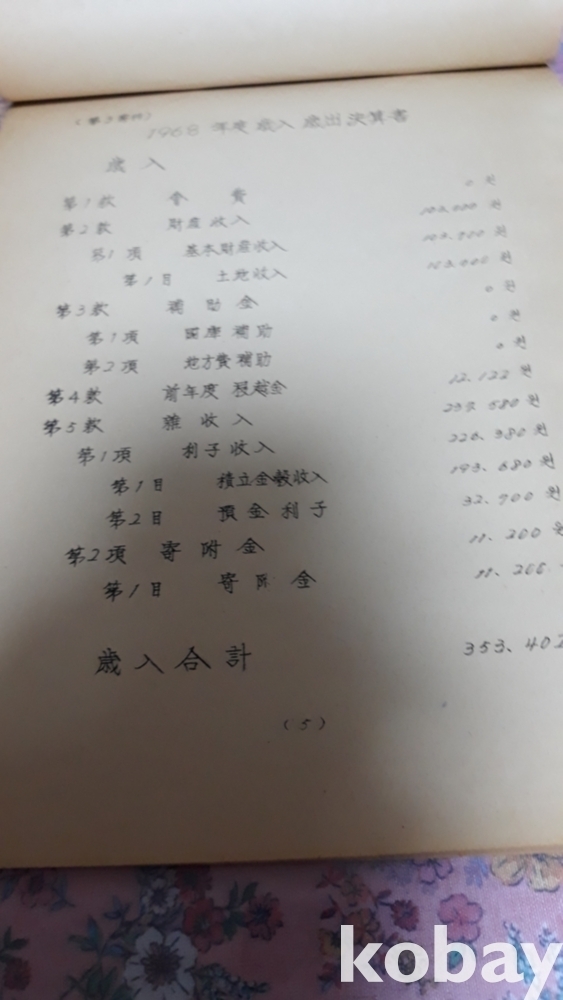 1968 年度 歳入 歳出 決算書
歳入
第1款 会費 0 원
第2款 財産收入 원
第1項 基本財産收入 원
第1目 土地收入 원
第3款 補助金 0 원
第1項 国庫補助 0 원
第2項 地方費補助 0 원
第4款 前年度 越金 12.122 원
第5款 雜收入 원
第1項 利子收入 원
第1目 積立金穀收入 193.680 원
第2目 預金利子 32.700 원
第2項 寄附金 11.200 원
第1目 寄附金 11.200 원
歳入合計 353.402
(5)
kobay